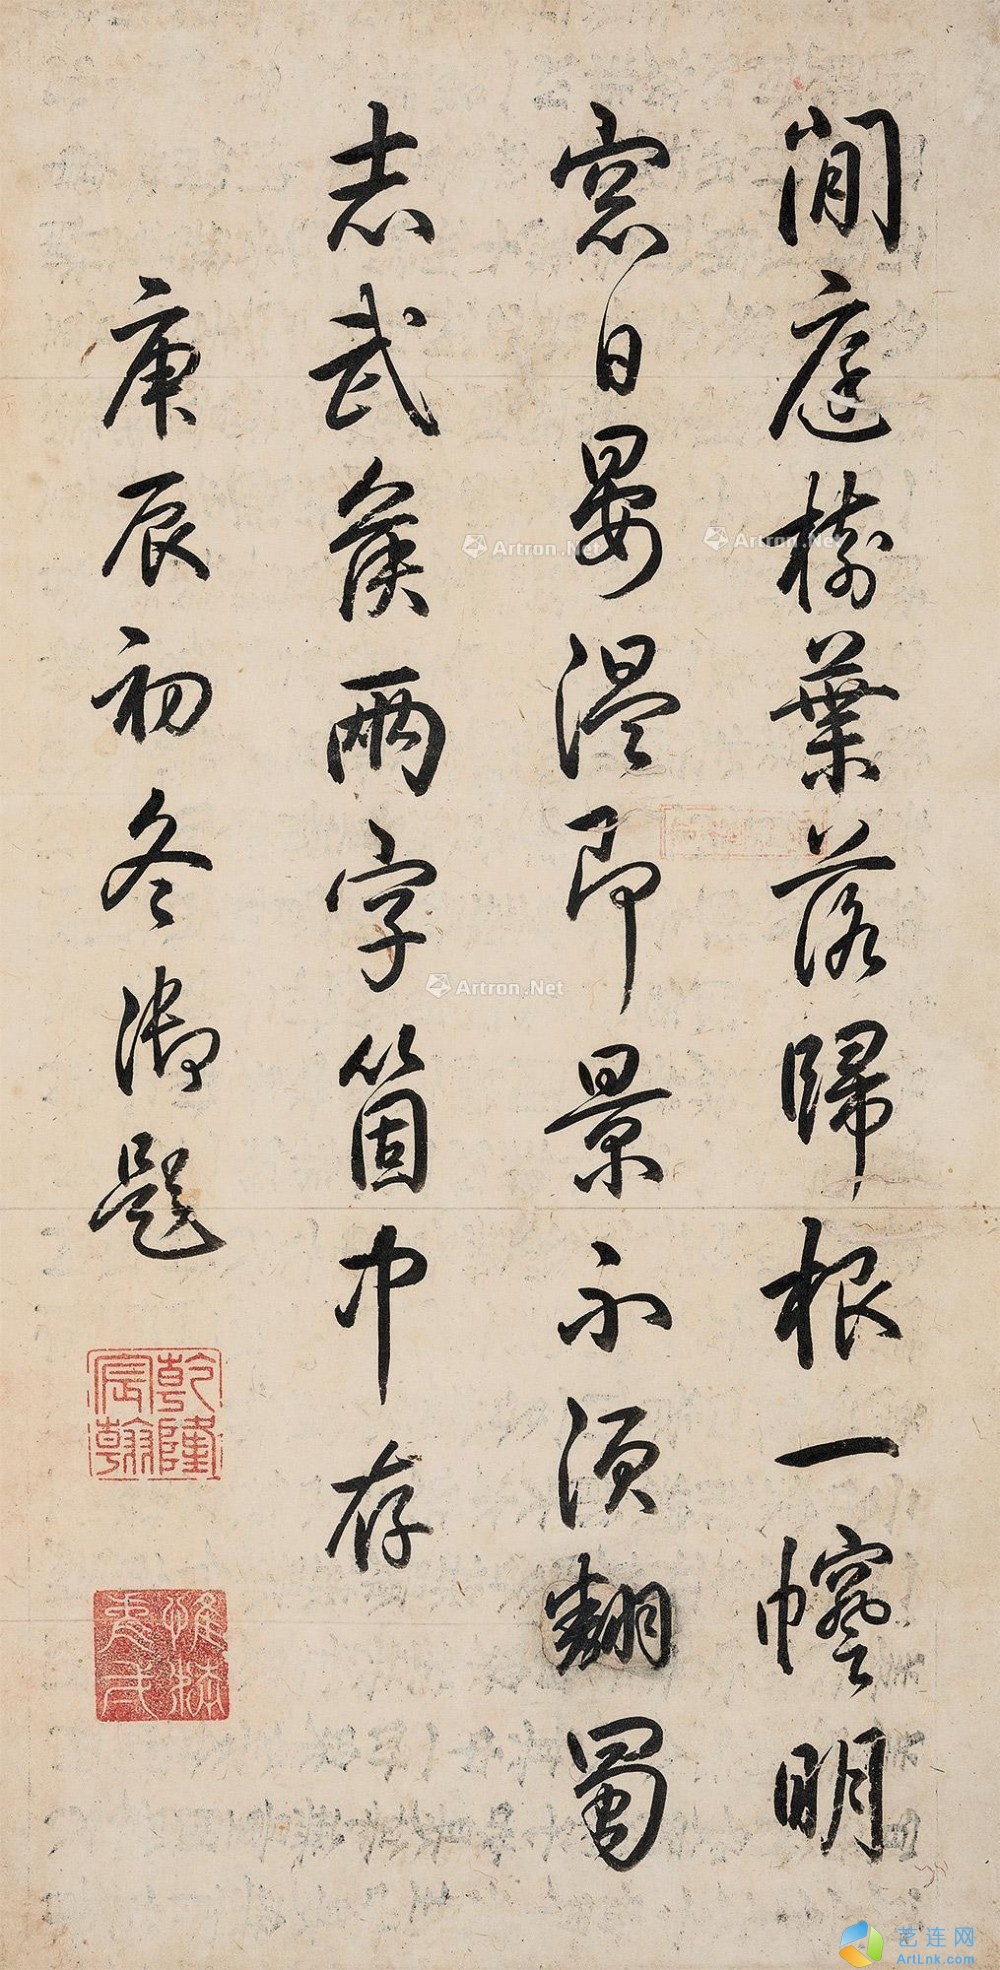 閒庭樹葉落歸根一幰明
窓日晏溫即景不須翻蜀
志武侯兩字箇中存
庚辰初冬御題
乾隆
宸翰
惟精
惟一
Artron.Net
Artron.Net
Artron.Net
艺连网
ArtLnk.com